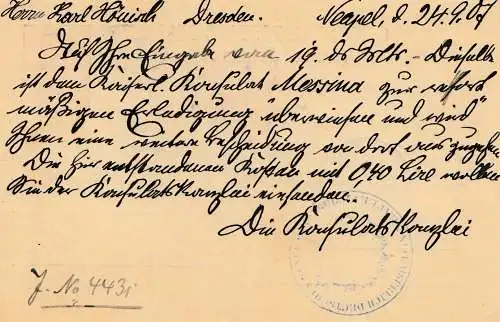 Herrn Karl Hönisch Dresden. Neapel, d. 24.9.07
Auf Ihre Eingabe vom 19. ds Mts. - Dieselbe
ist dem Kaiserl. Konsulat Messina zur ressort
mäßigen Erledigung überwiesen und wird
Ihnen eine weitere Bescheidung von dort aus zugehen.
Die hier entstandenen Kosten mit 0,40 Lire wollen
Sie der Konsulatskanzlei einsenden.
Die Konsulatskanzlei
J. No 4431